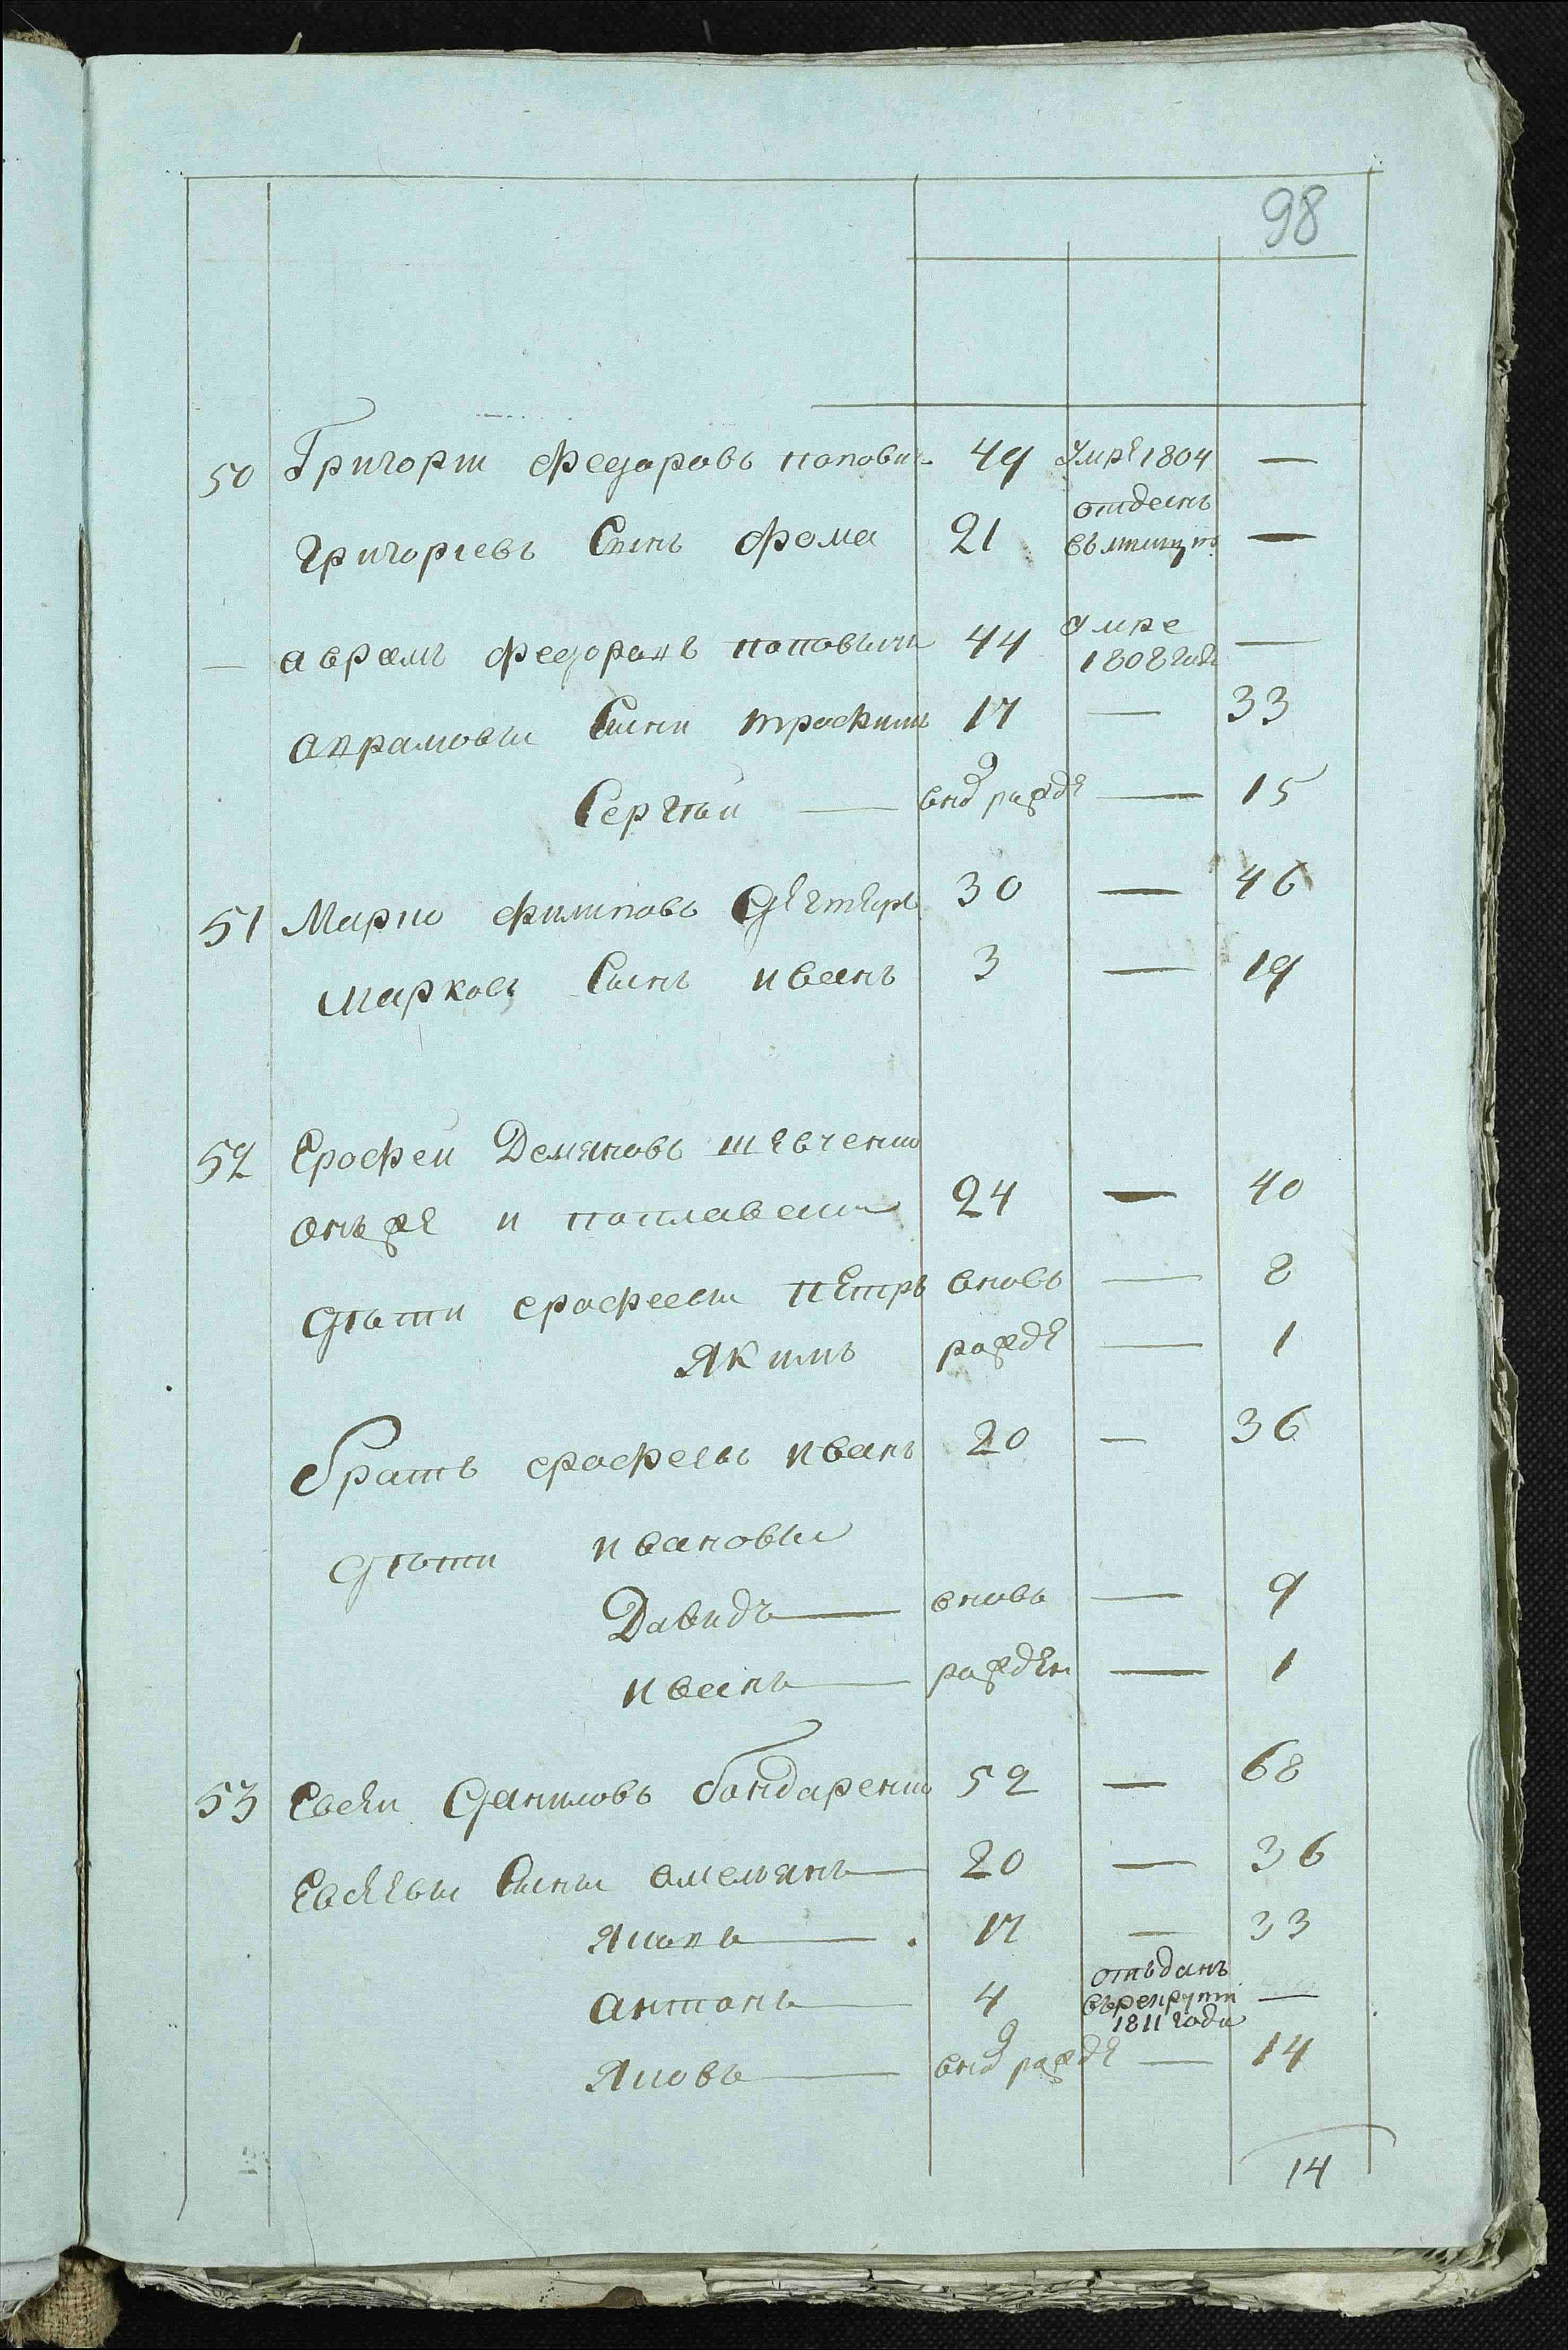 98
50 Григорiи Федоровъ попович 49 умре 1804 —
Григорiевъ Сынъ Фома 21 отданъ въ милицiю —
— аврамъ федоровъ поповичъ 44 умре 1808 года —
аврамовы Сыни трофимъ 17 — 33
Сергѣй — внов рожде — 15
51 Марко филиповъ Дегтеръ 30 — 46
марковъ Сынъ иванъ 3 — 19
52 Ерофеи Демяновъ шевченко
онъже и поплавски 24 — 40
Дѣти ерофеевы петръ вновь — 8
Якимъ рожде — 1
братъ ерофеевъ иванъ 20 — 36
Дѣти ивановы
Давидъ — вновь — 9
иванъ — рожден — 1
53 Евсеи Даниловъ бондаренко 52 — 68
Евсеевы Сыны омельянъ — 20 — 36
Яковъ — 17 — 33
антонъ — 4 отъданъ въ рекруты 1811 года —
Яковъ — внов рожде — 14
14